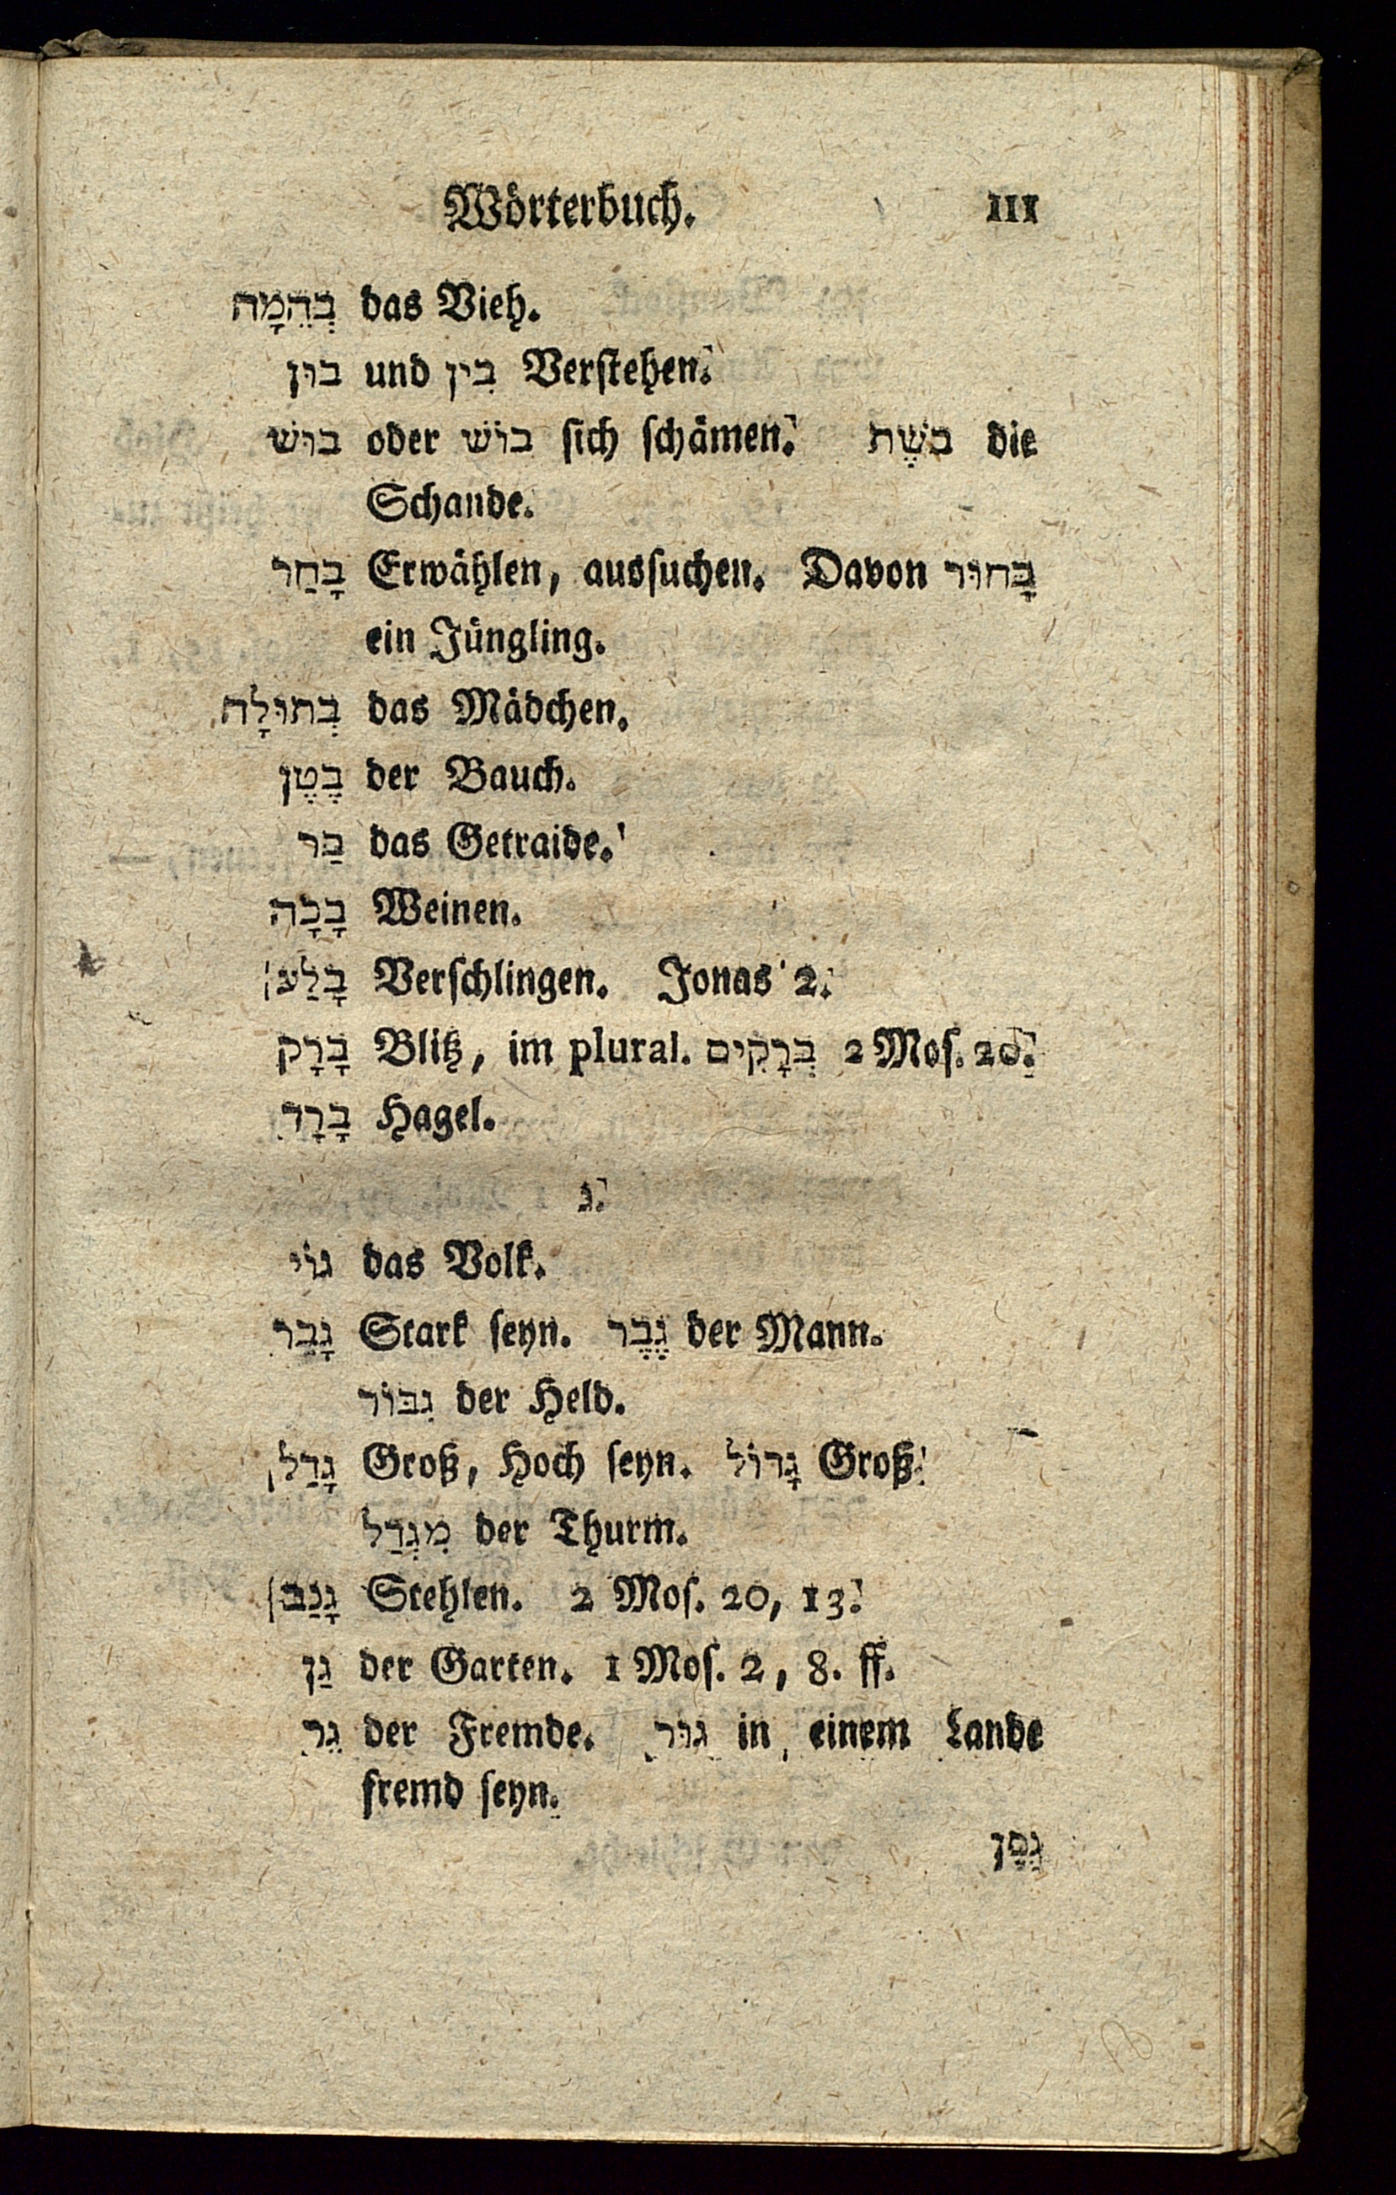 Wörterbuch. 111
בְּהֵמָה das Vieh.
בוּן und בִין Verstehen.
בוּשׁ oder בוֹשׁ sich schämen. בֹּשֶׁת die
Schande.
בָּחַר Erwählen, aussuchen. Davon בָּחוּר
ein Jüngling.
בְּתוּלָה das Mädchen.
בֶּטֶן der Bauch.
בַּר das Getraide.
בָּכָה Weinen.
בָּלַע Verschlingen. Jonas 2.
בָּרָק Blitz, im plural. בְּרָקִים 2 Mos. 20.
בָּרָד Hagel.
ג.
גוֹי das Volk.
גָּבַר Stark seyn. גֶּבֶר der Mann.
גִבּוֹר der Held.
גָּדַל Groß, Hoch seyn. גָּדוֹל Groß.
מִגְדַּל der Thurm.
גָּנַב Stehlen. 2 Mos. 20, 13.
גַּן der Garten. 1 Mos. 2, 8. ff.
גֵּר der Fremde. גוּר in einem Lande
fremd seyn.
גֶּפֶן